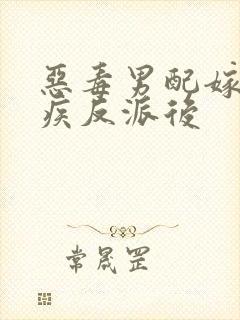 惡毒男配嫁
疾反派後
常晟罡